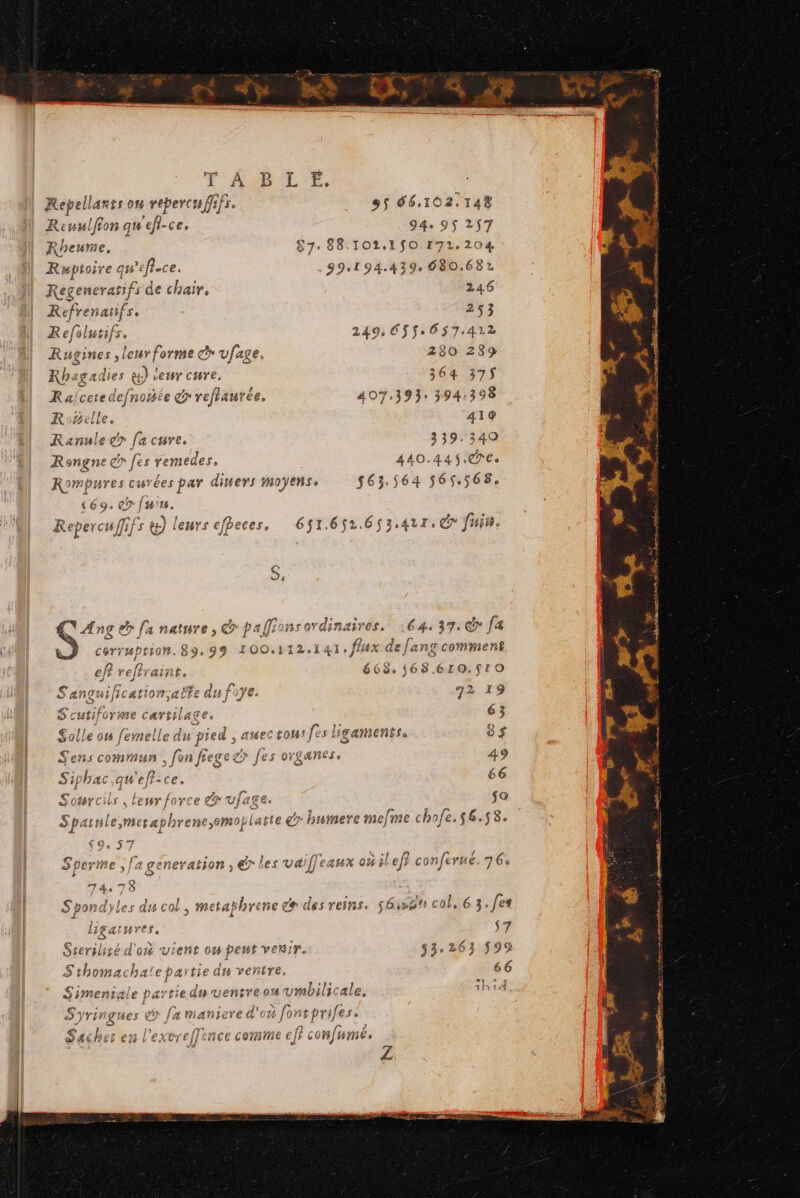 TABLE.
Repellants ou repercuſſifs. 95 66.102.148
Reuulſion qu'eſt-ce. 94. 95 257
Rheume. 87. 88.101.150 171.204
Ruptoire qu'eſt-ce. 99.194.439. 680.682
Regeneratifs de chair. 246
Refrenatifs. 253
Reſolutifs. 249. 655.657.422
Rugines, leur forme & vſage. 280 289
Rhagadies & leur cure. 364 375
407.393. 394.398
419
Ranule & ſa cure. 339.340
Rongne & ſes remedes. 440.445.&c.
Rompures curées par diuers moyens. 563.564 565.568.
569. & ſuiu.
Repercuſſifs & leurs eſpeces. 651.652.653.421. & ſuiu.
S.
SAng & ſa nature, & paſſions ordinaires. 64. 37. & ſa
corruption. 89. 99 100.112.141. flux de ſang comment
eſt reſtraint. 668. 568.610.510
Sanguification, acte du foye. 72 19
Scutiforme cartilage. 63
Solle ou ſemelle du pied, auec tous ſes ligaments. 85
Sens commun, ſon ſiege & ſes organes. 49
Siphac, qu'eſt-ce. 66
Sourcils, leur force & vſage. 50
Spatule, metaphrene, omoplatte & humere meſme choſe. 56.58.
59. 57
Sperme, ſa generation, & les vaiſſeaux où il eſt conſerué. 76.
74. 78
Spondyles du col, metaphrene & des reins. col. 63. ſes
ligatures. 57
Sterilité d'où vient ou peut venir. 53.263 599
Sthomachale partie du ventre. 66
Simeniale partie du ventre ou vmbilicale. ibid.
Syringues & ſa maniere d'où ſont priſes.
Sachet en l'excreſſence comme eſt conſumé.
Z